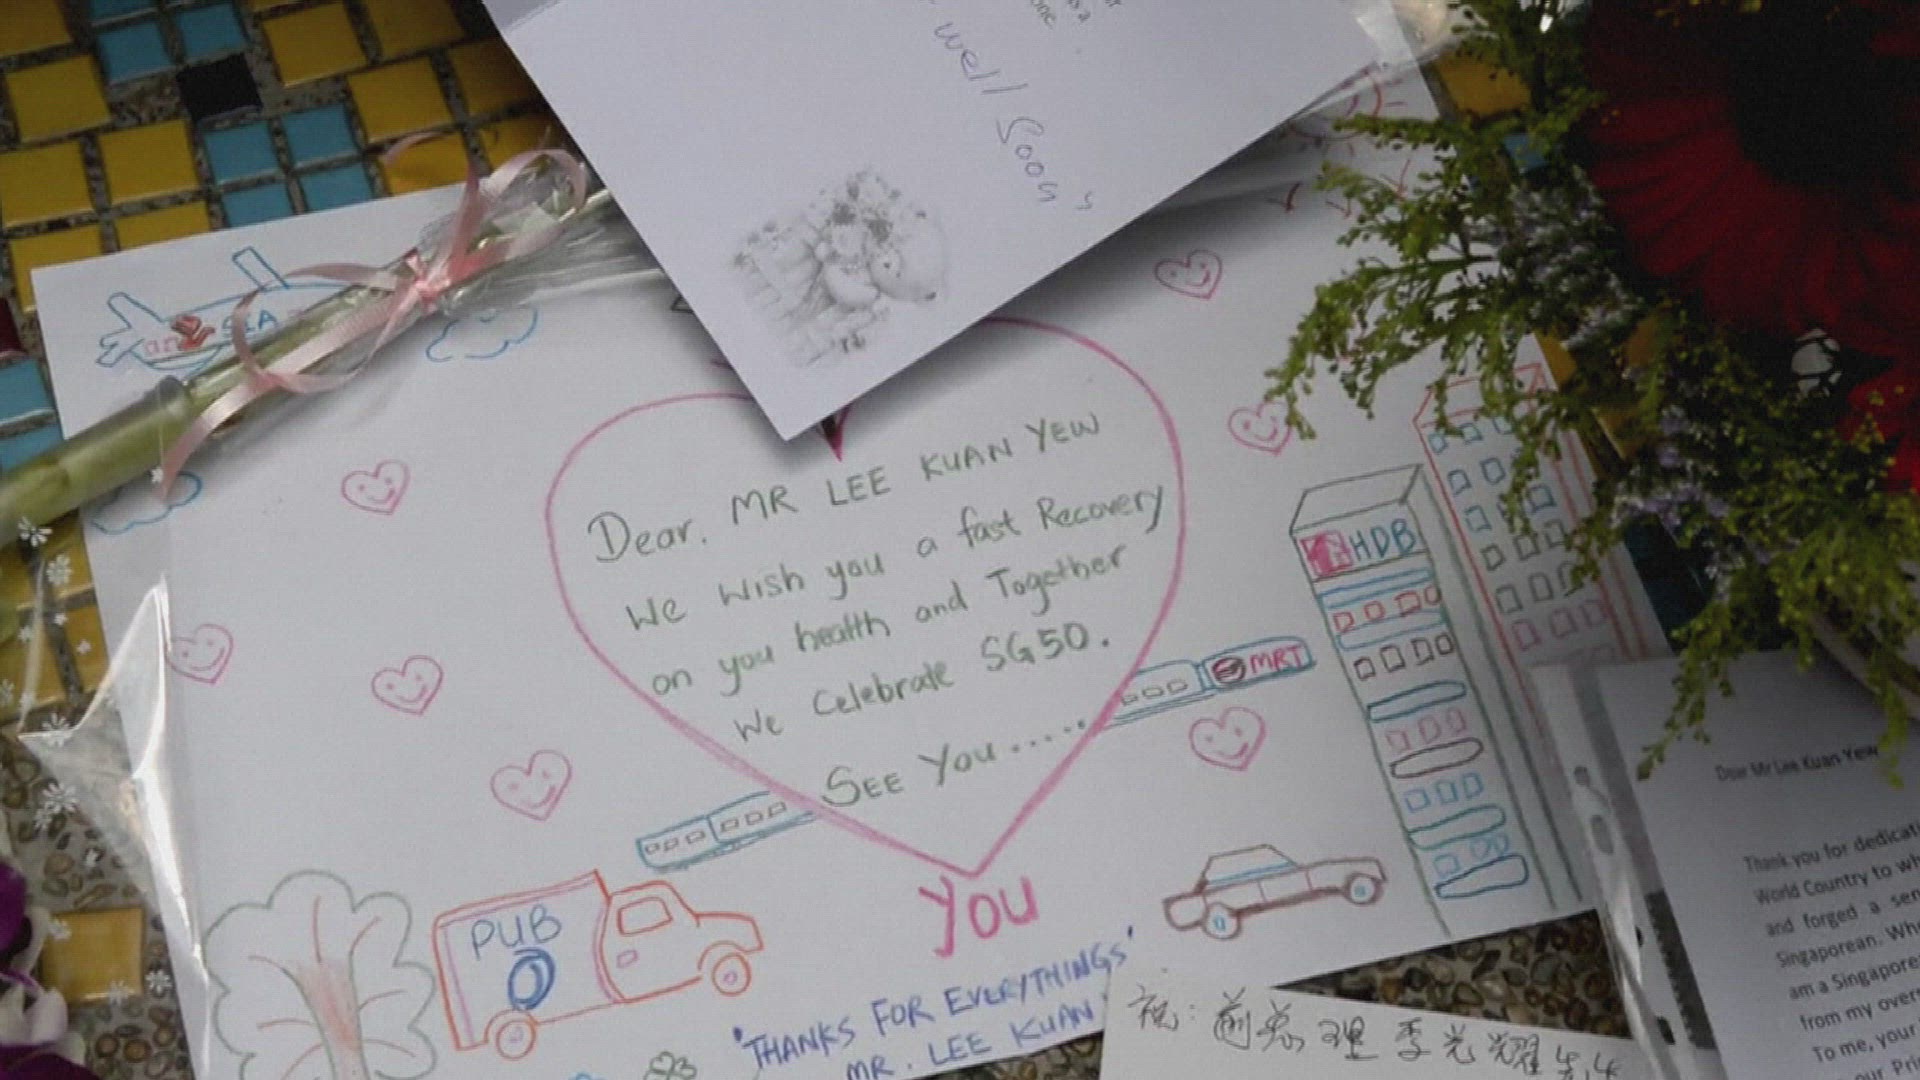 well Soon
SIA
Dear. MR LEE KUAN YEW
We wish you a fast Recovery
on you health and Together
We Celebrate SG50.
SEE YOU.....
YOU
HDB
MRT
PUB
"THANKS FOR EVERYTHINGS"
MR. LEE KUAN
祝: 前总理李光耀先生
Dear Mr Lee Kuan Yew
Thank you for dedicat
World Country to wh
and forged a sen
Singaporean. Whe
am a Singapore
from my overs
To me, your
our Pri